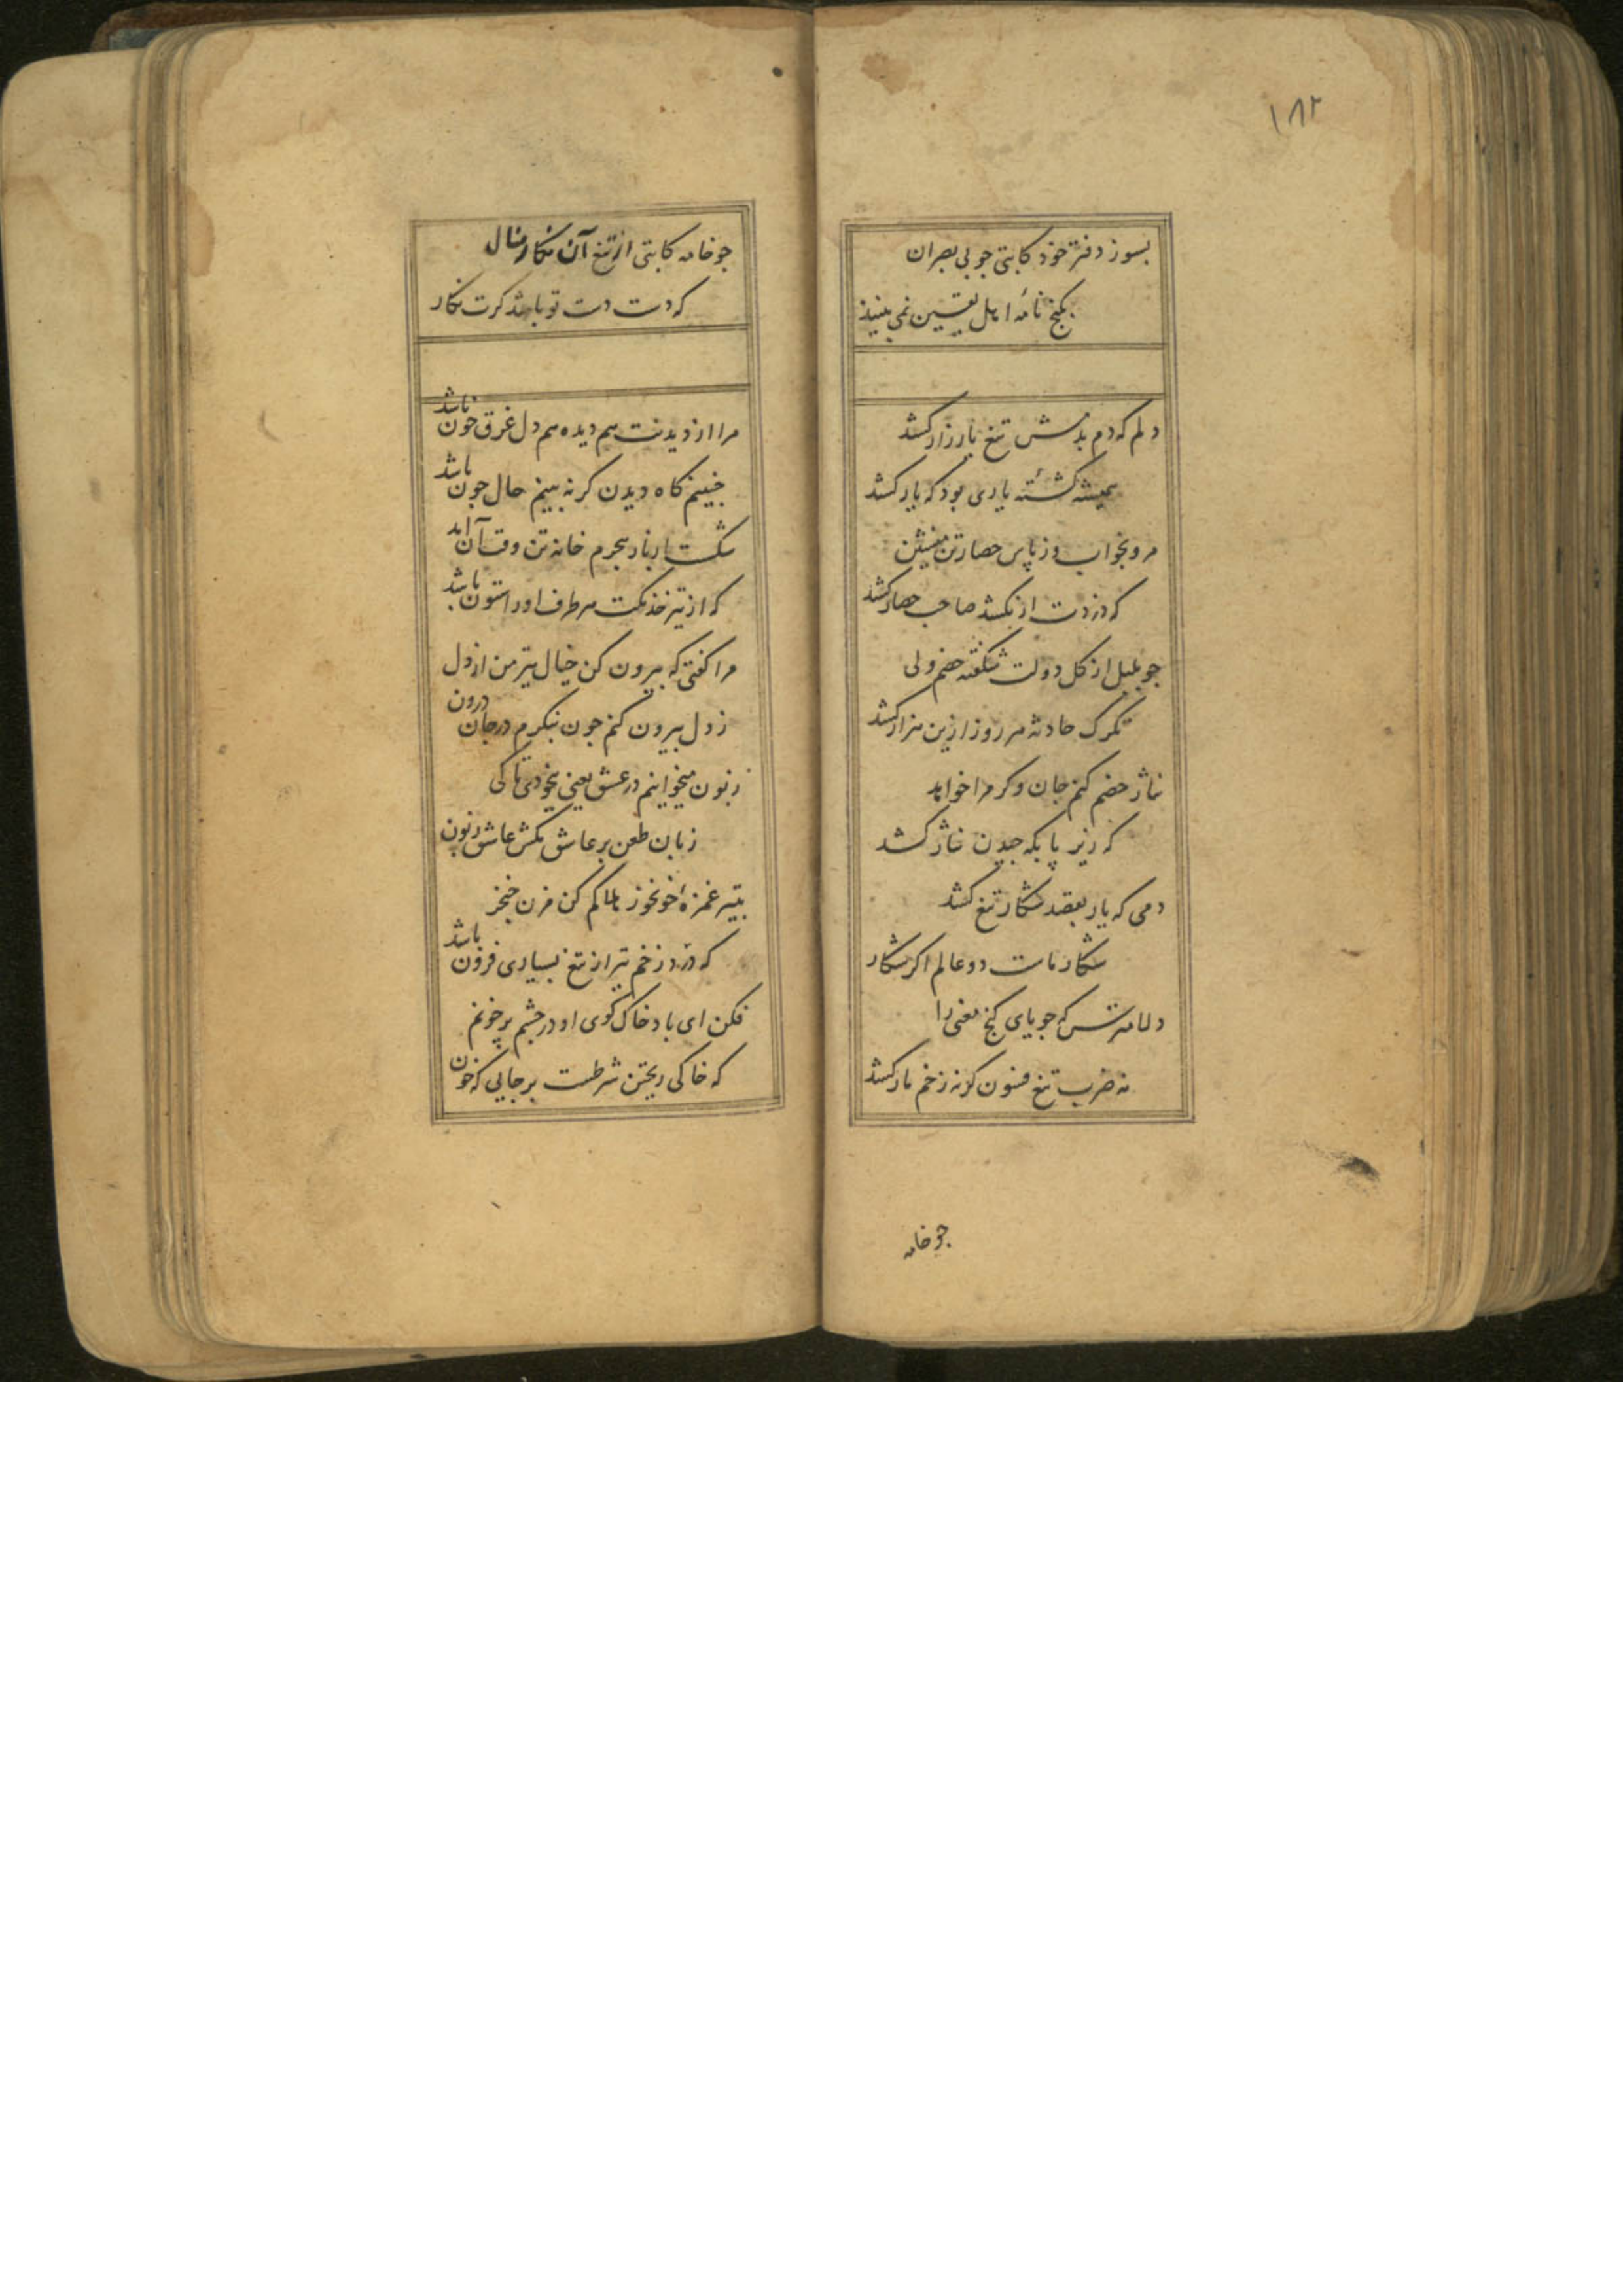 ۱۸۲
بسوز دفتر خود کاتبی جو بی بصران
بکنج نامه اهل یقین نمی بینند
دلم که دم بدمش تیغ یار زار کشد
همیشه کشتهٔ یاری بود که یار کشد
مرو بخواب وز پاس حصار تن منشین
که دزدت ار نکشد صاحب حصار کشد
جو بلبل از کل دولت شکفته خصم ولی
تکرک حادثه هر روز ازین هزار کشد
نثار خصم کنم جان وکر مرا خواهد
که زیر پا بکه جیدن نثار کشد
دمی که یار بقصد شکار تیغ کشد
شکار ماست دو عالم اکر شکار
دلا مترس که جویای کنج معنی را
نه ضرب تیغ فسون کر نه زخم مار کشد
جو خامه
جو خامه کاتبی از تیغ آن نکار منال
که دست دست تو باشد کرت نکار
مرا از دیدنت هم دیده هم دل غرق خون باشد
جنینم کاه دیدن کر نه بینم حال جون باشد
شکست از بار هجرم خانه تن وقت آن آمد
که از تیر خدنکت هر طرف او را ستون باشد
مرا کفتی که بیرون کن خیال تیر من از دل
ز دل بیرون کنم جون بنکرم در جان درون
زبون میخوانیم در عشق یعنی بیخودی تا کی
زبان طعن بر عاشق مکش عاشق زبون
بتیر غمزهٔ خونخوز ما کم کن مزن خنجر
که درد زخم تیر از تیغ بسیاری فزون باشد
فکن ای باد خاک کوی او در جشم پر خونم
که خاکی ریختن شرطست بر جایی که خون